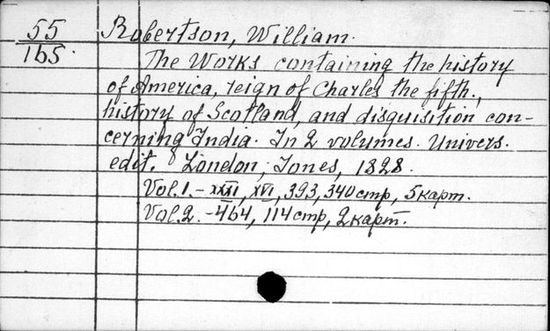 55
165.
Robertson, William.
The Works containing the history
of America, reign of Charles the fifth.,
history of Scotland, and disquisition con-
cerning India. In 2 volumes. Univers.
edit. London, Jones, 1828.
Vol. 1. - XXII, XVI, 393, 340 стр, 5 карт.
Vol. 2. - 464, 114 стр, 2 карт.